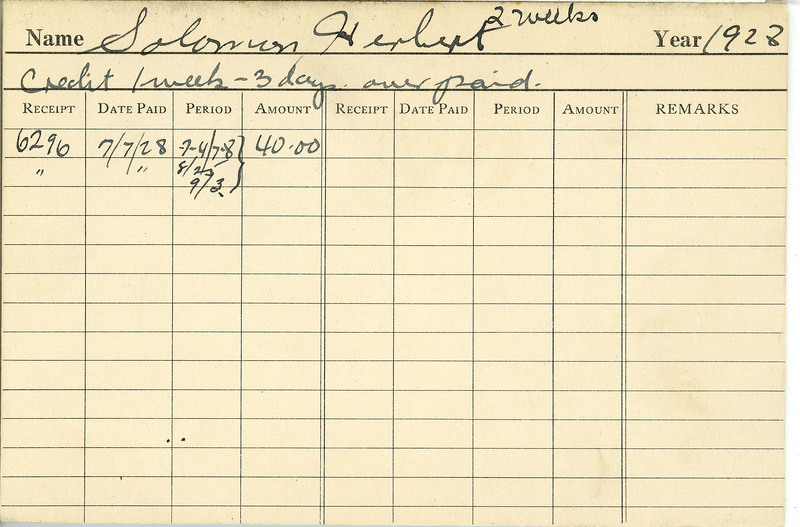 Name Solomon, Herbert 2 weeks Year 1928
Credit 1 week - 3 days over paid.
RECEIPT DATE PAID PERIOD AMOUNT RECEIPT DATE PAID PERIOD AMOUNT REMARKS
6296 7/7/28 7-4/7-8 40.00
" " 8/27
9/3